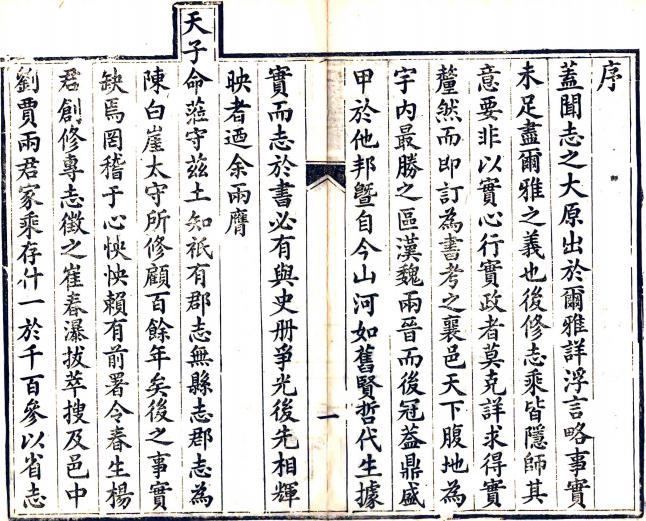 序
蓋聞志之大原出於爾雅詳浮言略事實
未足盡爾雅之義也後修志乘皆隱師其
意要非以實心行實政者莫克詳求得實
釐然而即訂為書考之襄邑天下腹地為
宇内最勝之區漢魏兩晉而後冠葢鼎盛
甲於他邦曁自今山河如舊賢哲代生據
一
實而志於書必有與史册爭光後先相輝
映者迺余兩膺
天子命蒞守茲土知祇有郡志無縣志郡志為
陳白崖太守所修顧百餘年矣後之事實
缺焉罔稽于心怏怏賴有前署令春生楊
君創修專志徵之崔春瀑拔萃搜及邑中
劉賈兩君家乘存什一於千百參以省志